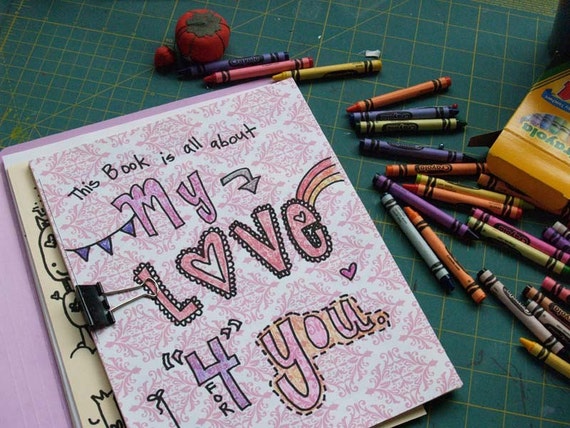 This Book is all about
My
LOVE
"4"
FOR
You.
crayola